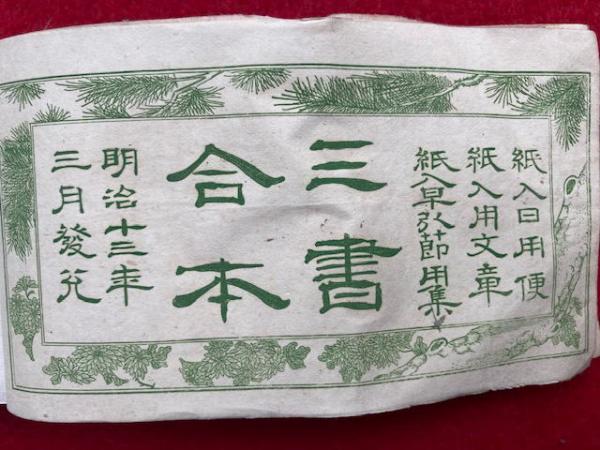 紙入日用便
紙入用文章
紙入早引節用集
三書
合本
明治十三年
三月發兌